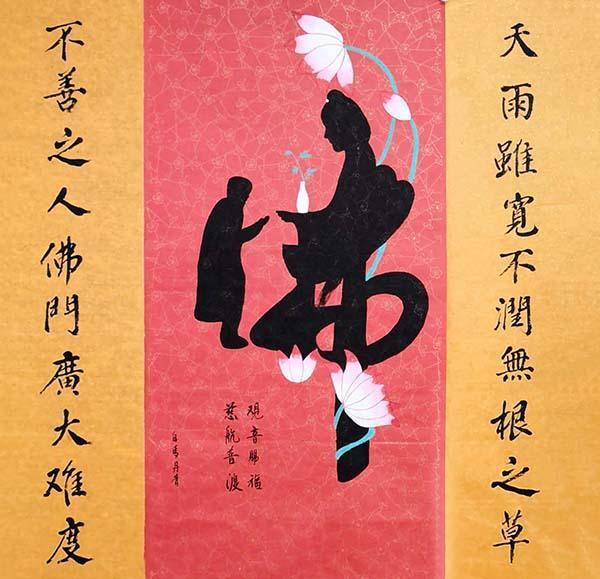 天雨雖寬不潤無根之草
佛
覌音賜福
慈航普渡
白馬丹青
不善之人佛門廣大难度